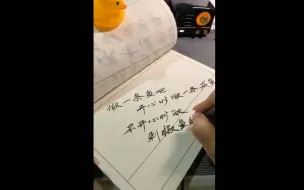 做一条鱼吧
开心时做一条
不开心时做
剁椒鱼